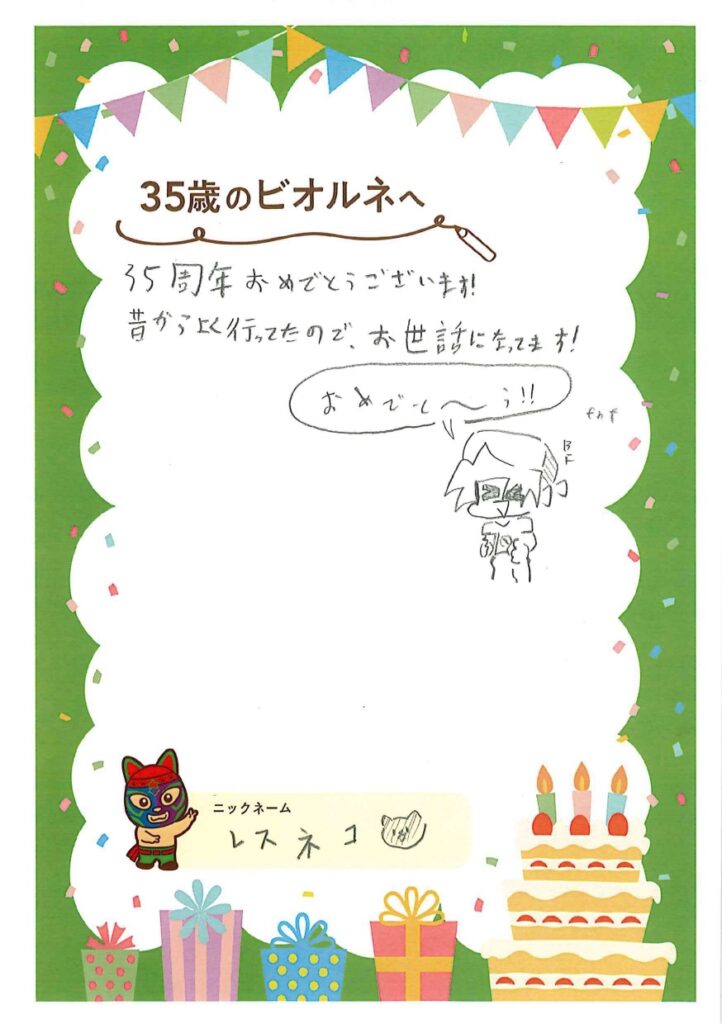 35歳のビオルネへ
35周年おめでとうございます!
昔からよく行ってたので、お世話になってます!
おめでと〜う!!
ニックネーム
レスネコ